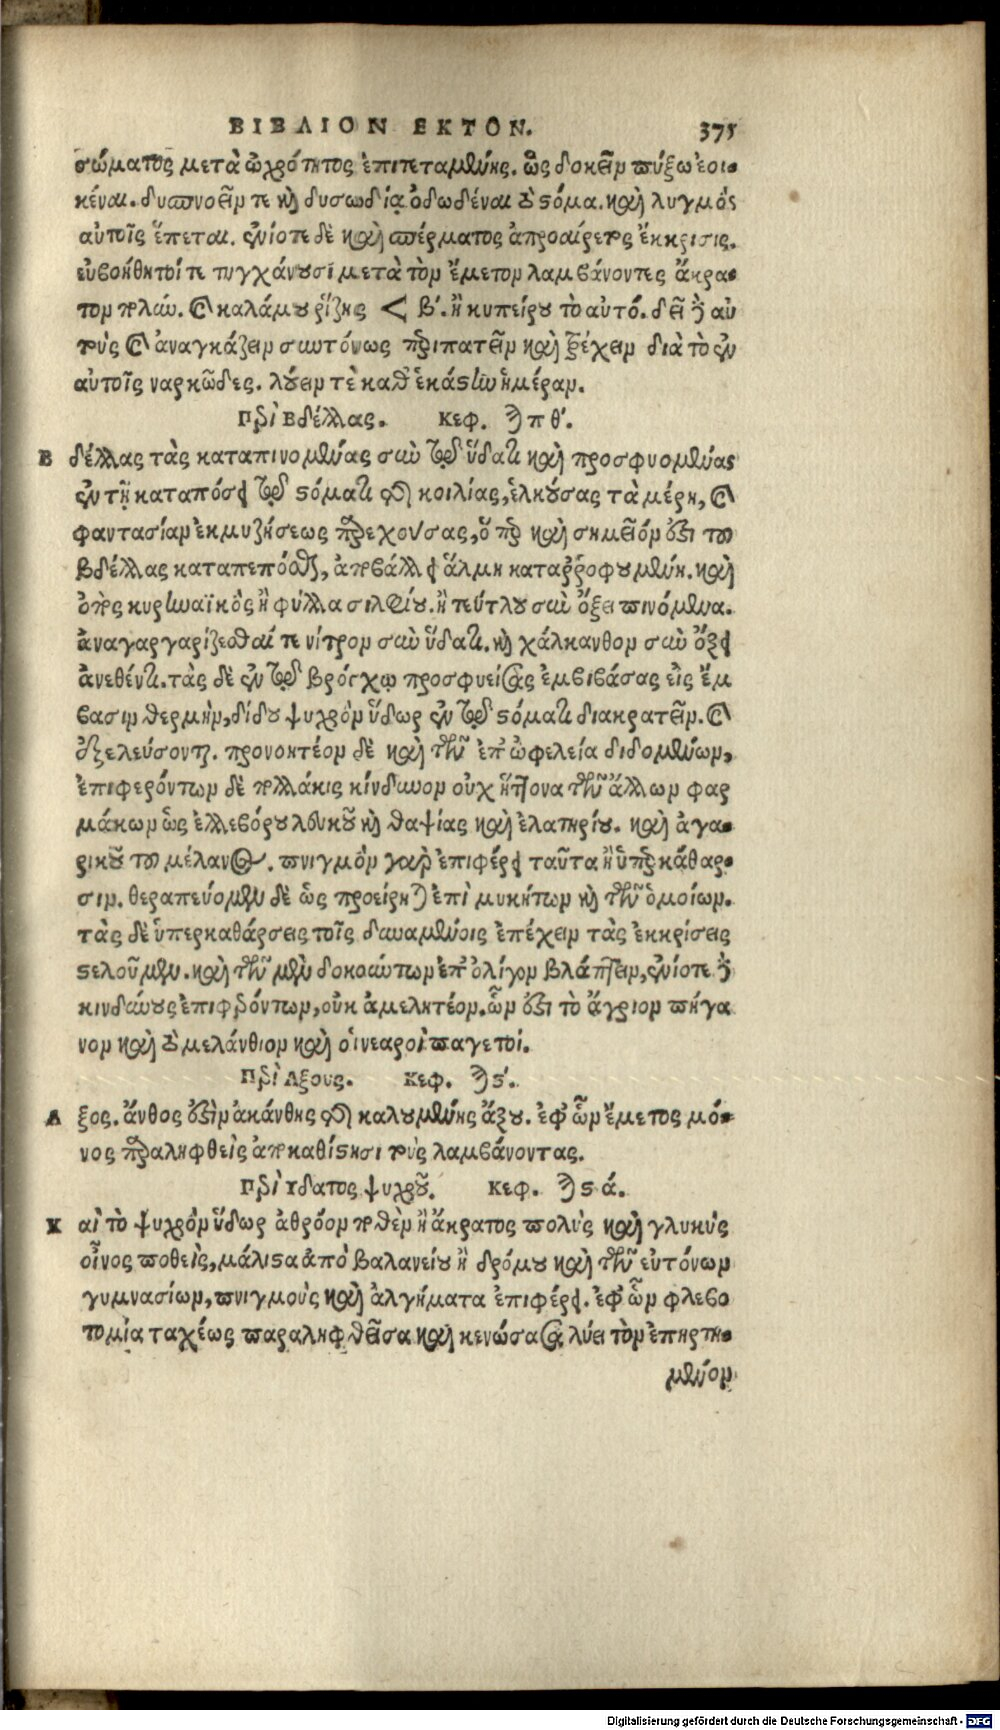 ΒΙΒΛΙΟΝ ΕΚΤΟΝ. 375
σώματος μετὰ ὠχρότητος ἐπιτεταμένης. ὡς δοκεῖν πύξω ἐοι-
κέναι. δυσπνοεῖν τε καὶ δυσωδίᾳ ὀδωδέναι τὸ στόμα. καὶ λυγμὸς
αὐτοῖς ἕπεται. ἐνίοτε δὲ καὶ σπέρματος ἀπροαίρετος ἔκκρισις.
εὐβοήθητοί τε τυγχάνουσι μετὰ τὸν ἔμετον λαμβάνοντες ἄκρα-
τον πολύν. καὶ καλάμου ῥίζης < β΄. ἢ κυπείρου τὸ αὐτό. δεῖ δὲ αὐ
τοὺς καὶ ἀναγκάζειν συντόνως περιπατεῖν καὶ τρέχειν διὰ τὸ ἐν
αὐτοῖς ναρκῶδες. λύειν τὲ καθ' ἑκάστην ἡμέραν.
Περὶ Βδέλλας. Κεφ. ϡπθ΄.
Βδέλλας τὰς καταπινομένας σὺν τῷ ὕδατι καὶ προσφυομένας
ἐν τῇ καταπόσει τῷ στόματι τῆς κοιλίας, ἑλκούσας τὰ μέρη, καὶ
φαντασίαν ἐκμυζήσεως παρεχούσας, ὅπερ καὶ σημεῖόν ἐστι τοῦ
βδέλλας καταπεπόσθαι, ἀποβάλλει ἅλμη καταρροφουμένη. καὶ
ὀπὸς κυρηναϊκὸς ἢ φύλλα σιλφίου. ἢ τεύτλου σὺν ὄξει πινόμενα.
ἀναγαργαρίζεσθαί τε νίτρον σὺν ὕδατι. καὶ χάλκανθον σὺν ὄξει
ἀνεθέντι. τὰς δὲ ἐν τῷ βρόγχῳ προσφυείσας ἐμβιβάσας εἰς ἔμ
βασιν θερμὴν, δίδου ψυχρὸν ὕδωρ ἐν τῷ στόματι διακρατεῖν. καὶ
ἐξελεύσονται. προνοητέον δὲ καὶ τῶν ἐπ' ὠφελείᾳ διδομένων,
ἐπιφερόντων δὲ πολλάκις κίνδυνον οὐχ ἥττονα τῶν ἄλλων φαρ
μάκων ὡς ἐλλεβόρου λευκοῦ καὶ θαψίας καὶ ἐλατηρίου. καὶ ἀγα-
ρικοῦ τοῦ μέλανος. πνιγμὸν γὰρ ἐπιφέρει ταῦτα ἢ ὑπερκάθαρ-
σιν. θεραπεύομεν δὲ ὡς προείρηται ἐπὶ μυκήτων καὶ τῶν ὁμοίων.
τὰς δὲ ὑπερκαθάρσεις τοῖς δυναμένοις ἐπέχειν τὰς ἐκκρίσεις
στελοῦμεν. καὶ τῶν μὲν δοκούντων ἐπ' ὀλίγον βλάπτειν, ἐνίοτε δὲ
κινδύνους ἐπιφερόντων, οὐκ ἀμελητέον. ὧν ἐστι τὸ ἄγριον πήγα
νον καὶ τὸ μελάνθιον καὶ οἱ νεαροὶ παγετοί.
Περὶ Αξους. Κεφ. ϡϛ΄.
Αξος. ἄνθος ἐστὶν ἀκάνθης τῆς καλουμένης ἄξου. ἐφ' ὧν ἔμετος μό-
νος παραληφθεὶς ἀποκαθίστησι τοὺς λαμβάνοντας.
Περὶ Υδατος ψυχροῦ. Κεφ. ϡϛά.
Καὶ τὸ ψυχρὸν ὕδωρ ἀθρόον ποθὲν ἢ ἄκρατος πολὺς καὶ γλυκὺς
οἶνος ποθεὶς, μάλιστα ἀπὸ βαλανείου ἢ δρόμου καὶ τῶν εὐτόνων
γυμνασίων, πνιγμοὺς καὶ ἀλγήματα ἐπιφέρει. ἐφ' ὧν φλεβο
τομία ταχέως παραληφθεῖσα καὶ κενώσασα λύει τὸν ἐπηρτη-
μένον
Digitalisierung gefördert durch die Deutsche Forschungsgemeinschaft - DFG